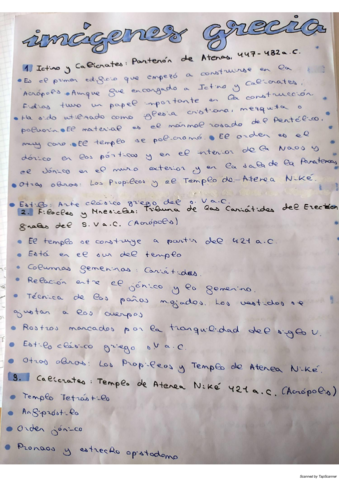 imágenes grecia
1 Ictino y Calicrates: Partenón de Atenas. 447-432 a.C.
• Es el primer edificio que empezó a construirse en la
Acrópolis • Aunque fue encargado a Ictino y Calicrates.
Fidias tuvo un papel importante en la construcción
• Ha sido utilizado como iglesia cristiana, mezquita o
polvorín • El material es el mármol rosado del Pentélico.
muy caro • El templo se policromó • El orden es el
dórico en los pórticos y en el interior de la Naos y
el jónico en el muro exterior y en la sala de la Parthenos
• Otras obras: Los Propileos y el Templo de Atenea Niké
• Estilo: Arte clásico griego del s. V a.C.
2. Filocles y Mnesicles: Tribuna de las Cariátides del Erecteion
finales del S. V a.C. (Acrópolis)
• El templo se construye a partir del 421 a.C
• Está en el sur del templo
• Columnas femeninas: Cariátides.
• Relación entre el jónico y lo femenino.
• Técnica de los paños mojados. Los vestidos se
ajustan a los cuerpos
• Rostros marcados por la tranquilidad del siglo V.
• Estilo clásico griego s V a.C
• Otras obras: Los Propileos y Templo de Atenea Niké
3. Calicrates: Templo de Atenea Niké 421 a.C. (Acrópolis)
• Templo Tetrástilo
• Anfipróstilo
• Orden jónico
• Pronaos y estrecho opistodomo
Scanned by TapScanner